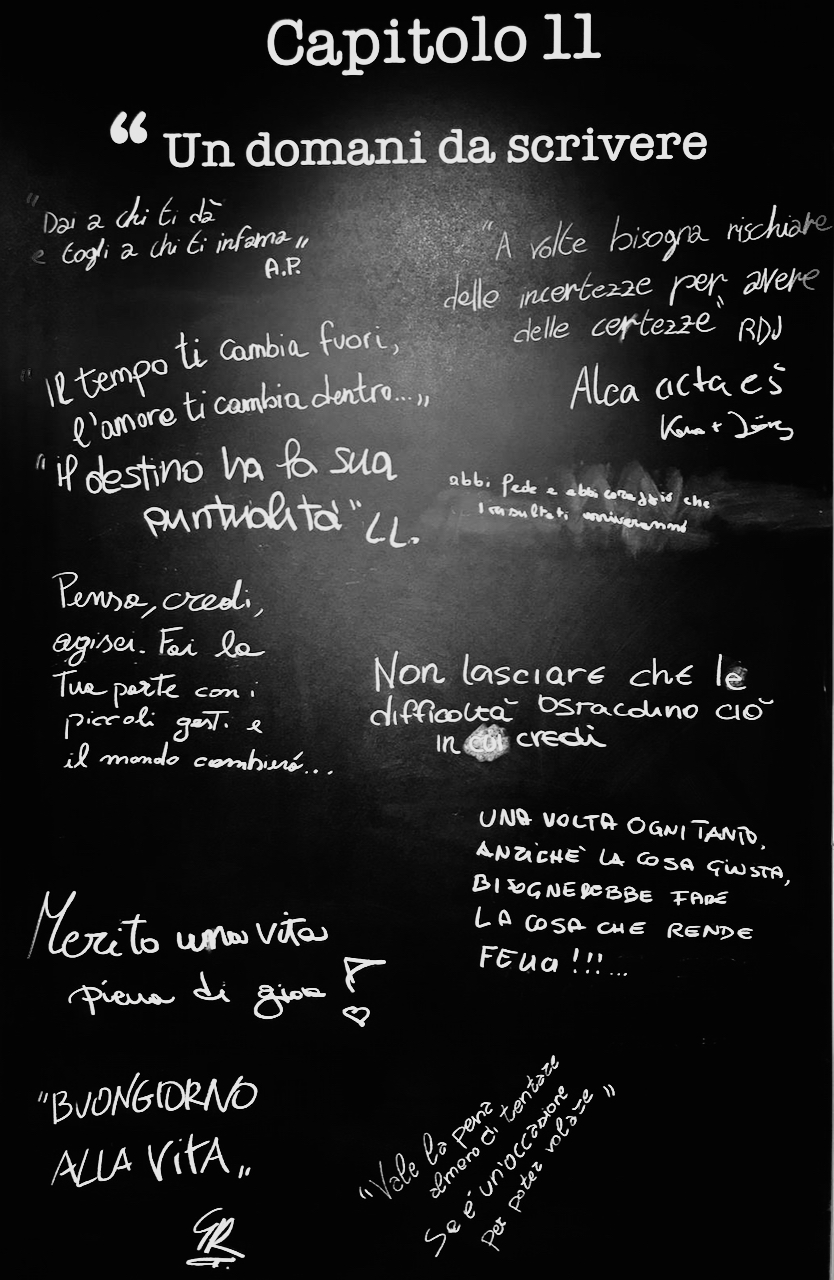 Capitolo 11
“ Un domani da scrivere
"Dai a chi ti dà
e togli a chi ti infama"
A.P.
"A volte bisogna rischiare
delle incertezze per avere
delle certezze" RDJ
"Il tempo ti cambia fuori,
l'amore ti cambia dentro..."
Alea acta eš
"il destino ha la sua
puntualità" LL.
abbi fede e abbi coraggio che
i risultati arriveranno
Pensa, credi,
agisci. Fai la
Tua parte con i
piccoli gesti e
il mondo cambierà...
Non lasciare che le
difficoltà ostacolino ciò
in cui credi
UNA VOLTA OGNI TANTO,
ANZICHÈ LA COSA GIUSTA,
BISOGNEREBBE FARE
LA COSA CHE RENDE
FELICI !!!...
Merito una vita
piena di gioia !
"BUONGIORNO
ALLA VITA"
GR
"Vale la pena
almeno di tentare
Se é un'occasione
per poter volare"